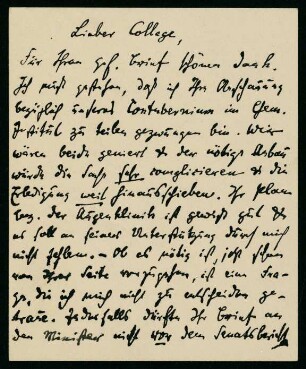 Lieber College,
Für Ihren gef. Brief schönen Dank.
Ich muß gestehen, daß ich Ihre Anschauung
bezüglich unseres Contubernium im Chem.
Institut zu teilen gezwungen bin. Wir
wären beide geniert & der nötige Ausbau
würde die Sache sehr complicieren & die
Erledigung weit hinausschieben. Ihr Plan
bez. der Augenklinik ist gewiß gut &
es soll an seiner Unterstützung durch mich
nicht fehlen. – Ob es nötig ist, jetzt schon
von Ihrer Seite vorzugehen, ist eine Fra-
ge, die ich mich nicht zu entscheiden ge-
traue. Jedenfalls dürfte Ihr Brief an
den Minister nicht vor dem Senatsbericht